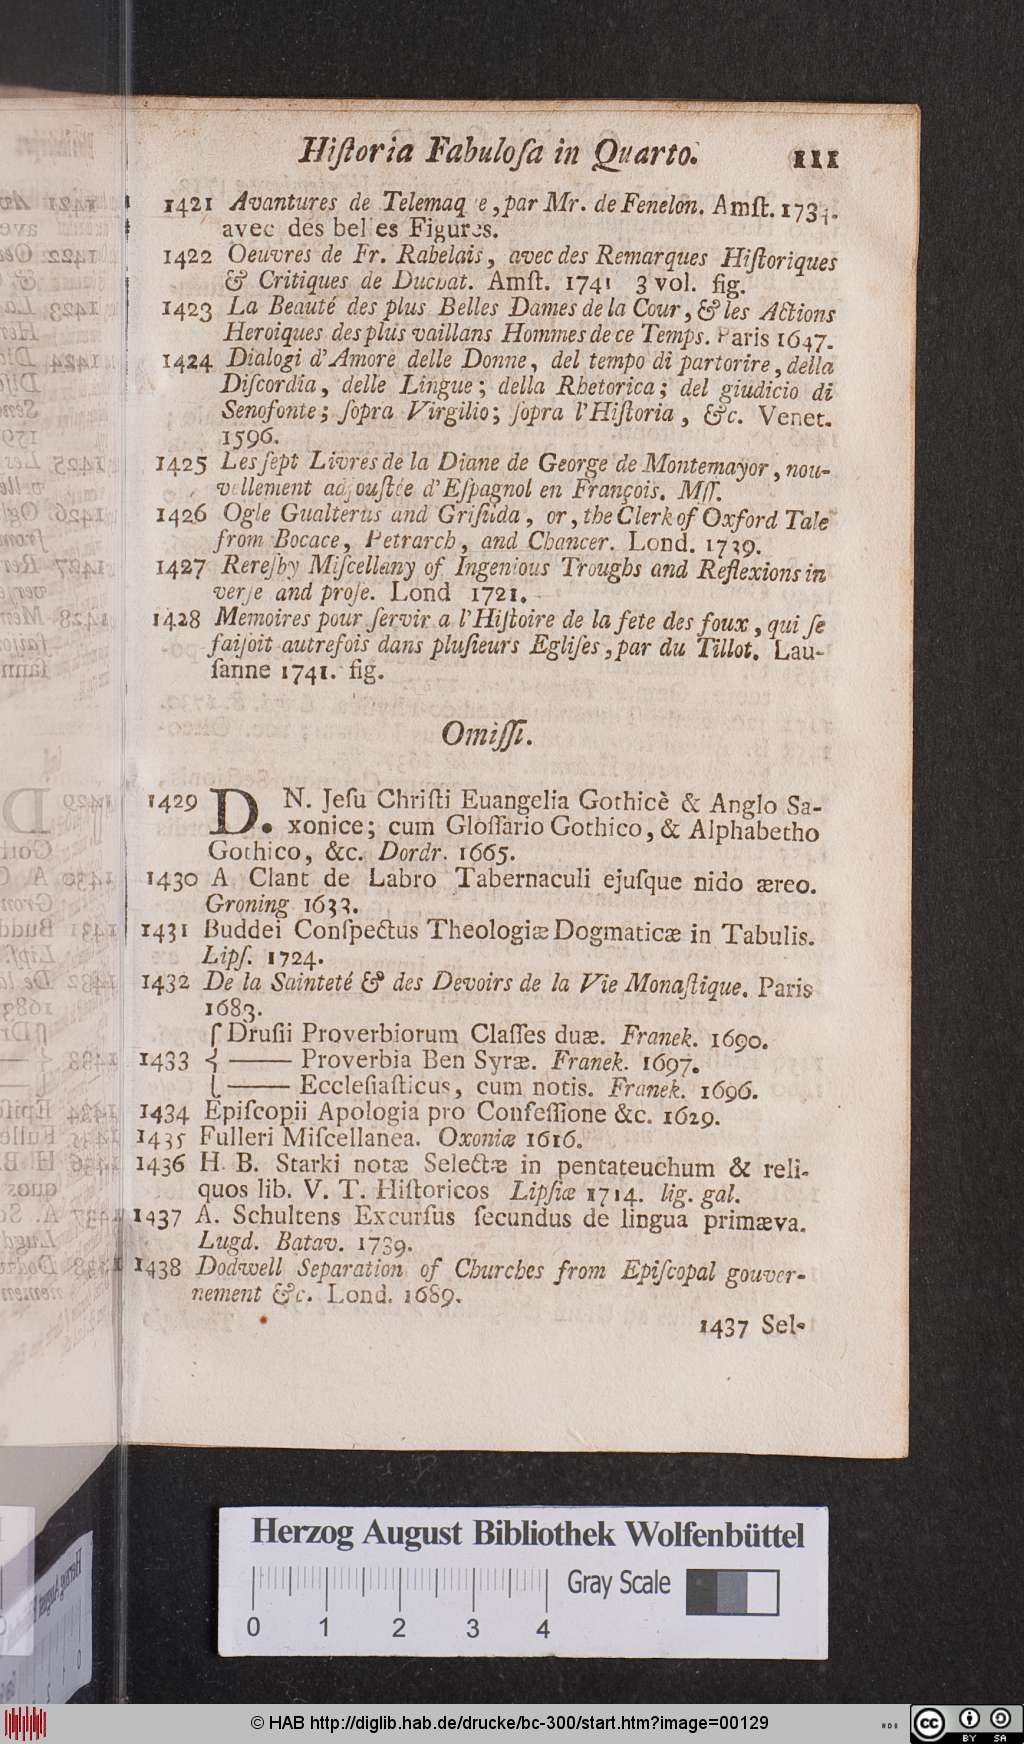 Hiſtoria Fabuloſa in Quarto. 111
1421 Avantures de Telemaq e, par Mr. de Fenelon. Amſt. 1734.
avec des bel es Figures.
1422 Oeuvres de Fr. Rabelais, avec des Remarques Hiſtoriques
& Critiques de Duchat. Amſt. 1741 3 vol. fig.
1423 La Beauté des plus Belles Dames de la Cour, & les Actions
Heroiques des plus vaillans Hommes de ce Temps. Paris 1647.
1424 Dialogi d'Amore delle Donne, del tempo di partorire, della
Diſcordia, delle Lingue; della Rhetorica; del giudicio di
Senofonte; ſopra Virgilio; ſopra l'Hiſtoria, &c. Venet.
1596.
1425 Les ſept Livres de la Diane de George de Montemayor, nou-
vellement adjouſtée d'Eſpagnol en François. Mſſ.
1426 Ogle Gualterus and Griſilda, or, the Clerk of Oxford Tale
from Bocace, Petrarch, and Chancer. Lond. 1739.
1427 Rereſby Miſcellany of Ingenious Troughs and Reflexions in
verſe and proſe. Lond 1721.
1428 Memoires pour ſervir a l'Hiſtoire de la fete des foux, qui ſe
faiſoit autrefois dans pluſieurs Egliſes, par du Tillot. Lau-
ſanne 1741. fig.
Omiſſi.
1429 D. N. Jeſu Chriſti Euangelia Gothicè & Anglo Sa-
xonice; cum Gloſſario Gothico, & Alphabetho
Gothico, &c. Dordr. 1665.
1430 A Clant de Labro Tabernaculi ejuſque nido æreo.
Groning 1633.
1431 Buddei Conſpectus Theologiæ Dogmaticæ in Tabulis.
Lipſ. 1724.
1432 De la Sainteté & des Devoirs de la Vie Monaſtique. Paris
1683.
Druſii Proverbiorum Claſſes duæ. Franek. 1690.
1433 { —— Proverbia Ben Syræ. Franek. 1697.
—— Eccleſiaſticus, cum notis. Franek. 1696.
1434 Epiſcopii Apologia pro Confeſſione &c. 1629.
1435 Fulleri Miſcellanea. Oxoniæ 1616.
1436 H. B. Starki notæ Selectæ in pentateuchum & reli-
quos lib. V. T. Hiſtoricos Lipſiæ 1714. lig. gal.
1437 A. Schultens Excurſus ſecundus de lingua primæva.
Lugd. Batav. 1739.
1438 Dodwell Separation of Churches from Epiſcopal gouver-
nement &c. Lond. 1689.
1437 Sel-
Herzog August Bibliothek Wolfenbüttel
Gray Scale
0 1 2 3 4
© HAB http://diglib.hab.de/drucke/bc-300/start.htm?image=00129
cc BY SA